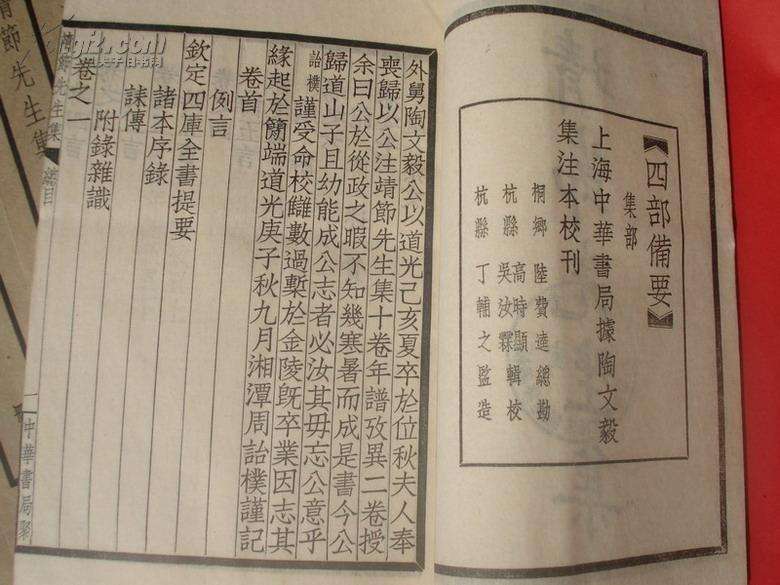 四部備要
集部
上海中華書局據陶文毅
集注本校刊
桐鄉 陸費逵總勘
杭縣 高時顯 吳汝霖 輯校
杭縣 丁輔之監造
外舅陶文毅公以道光己亥夏卒於位秋夫人奉
喪歸以公注靖節先生集十卷年譜攷異二卷授
余曰公於從政之暇不知幾寒暑而成是書今公
歸道山子且幼能成公志者必汝其毋忘公意乎
詒樸謹受命校讎數過槧於金陵既卒業因志其
緣起於簡端道光庚子秋九月湘潭周詒樸謹記
卷首
例言
欽定四庫全書提要
諸本序錄
誄傳
附錄雜識
卷之一
靖節先生集 總目
一 中華書局聚
節先生集